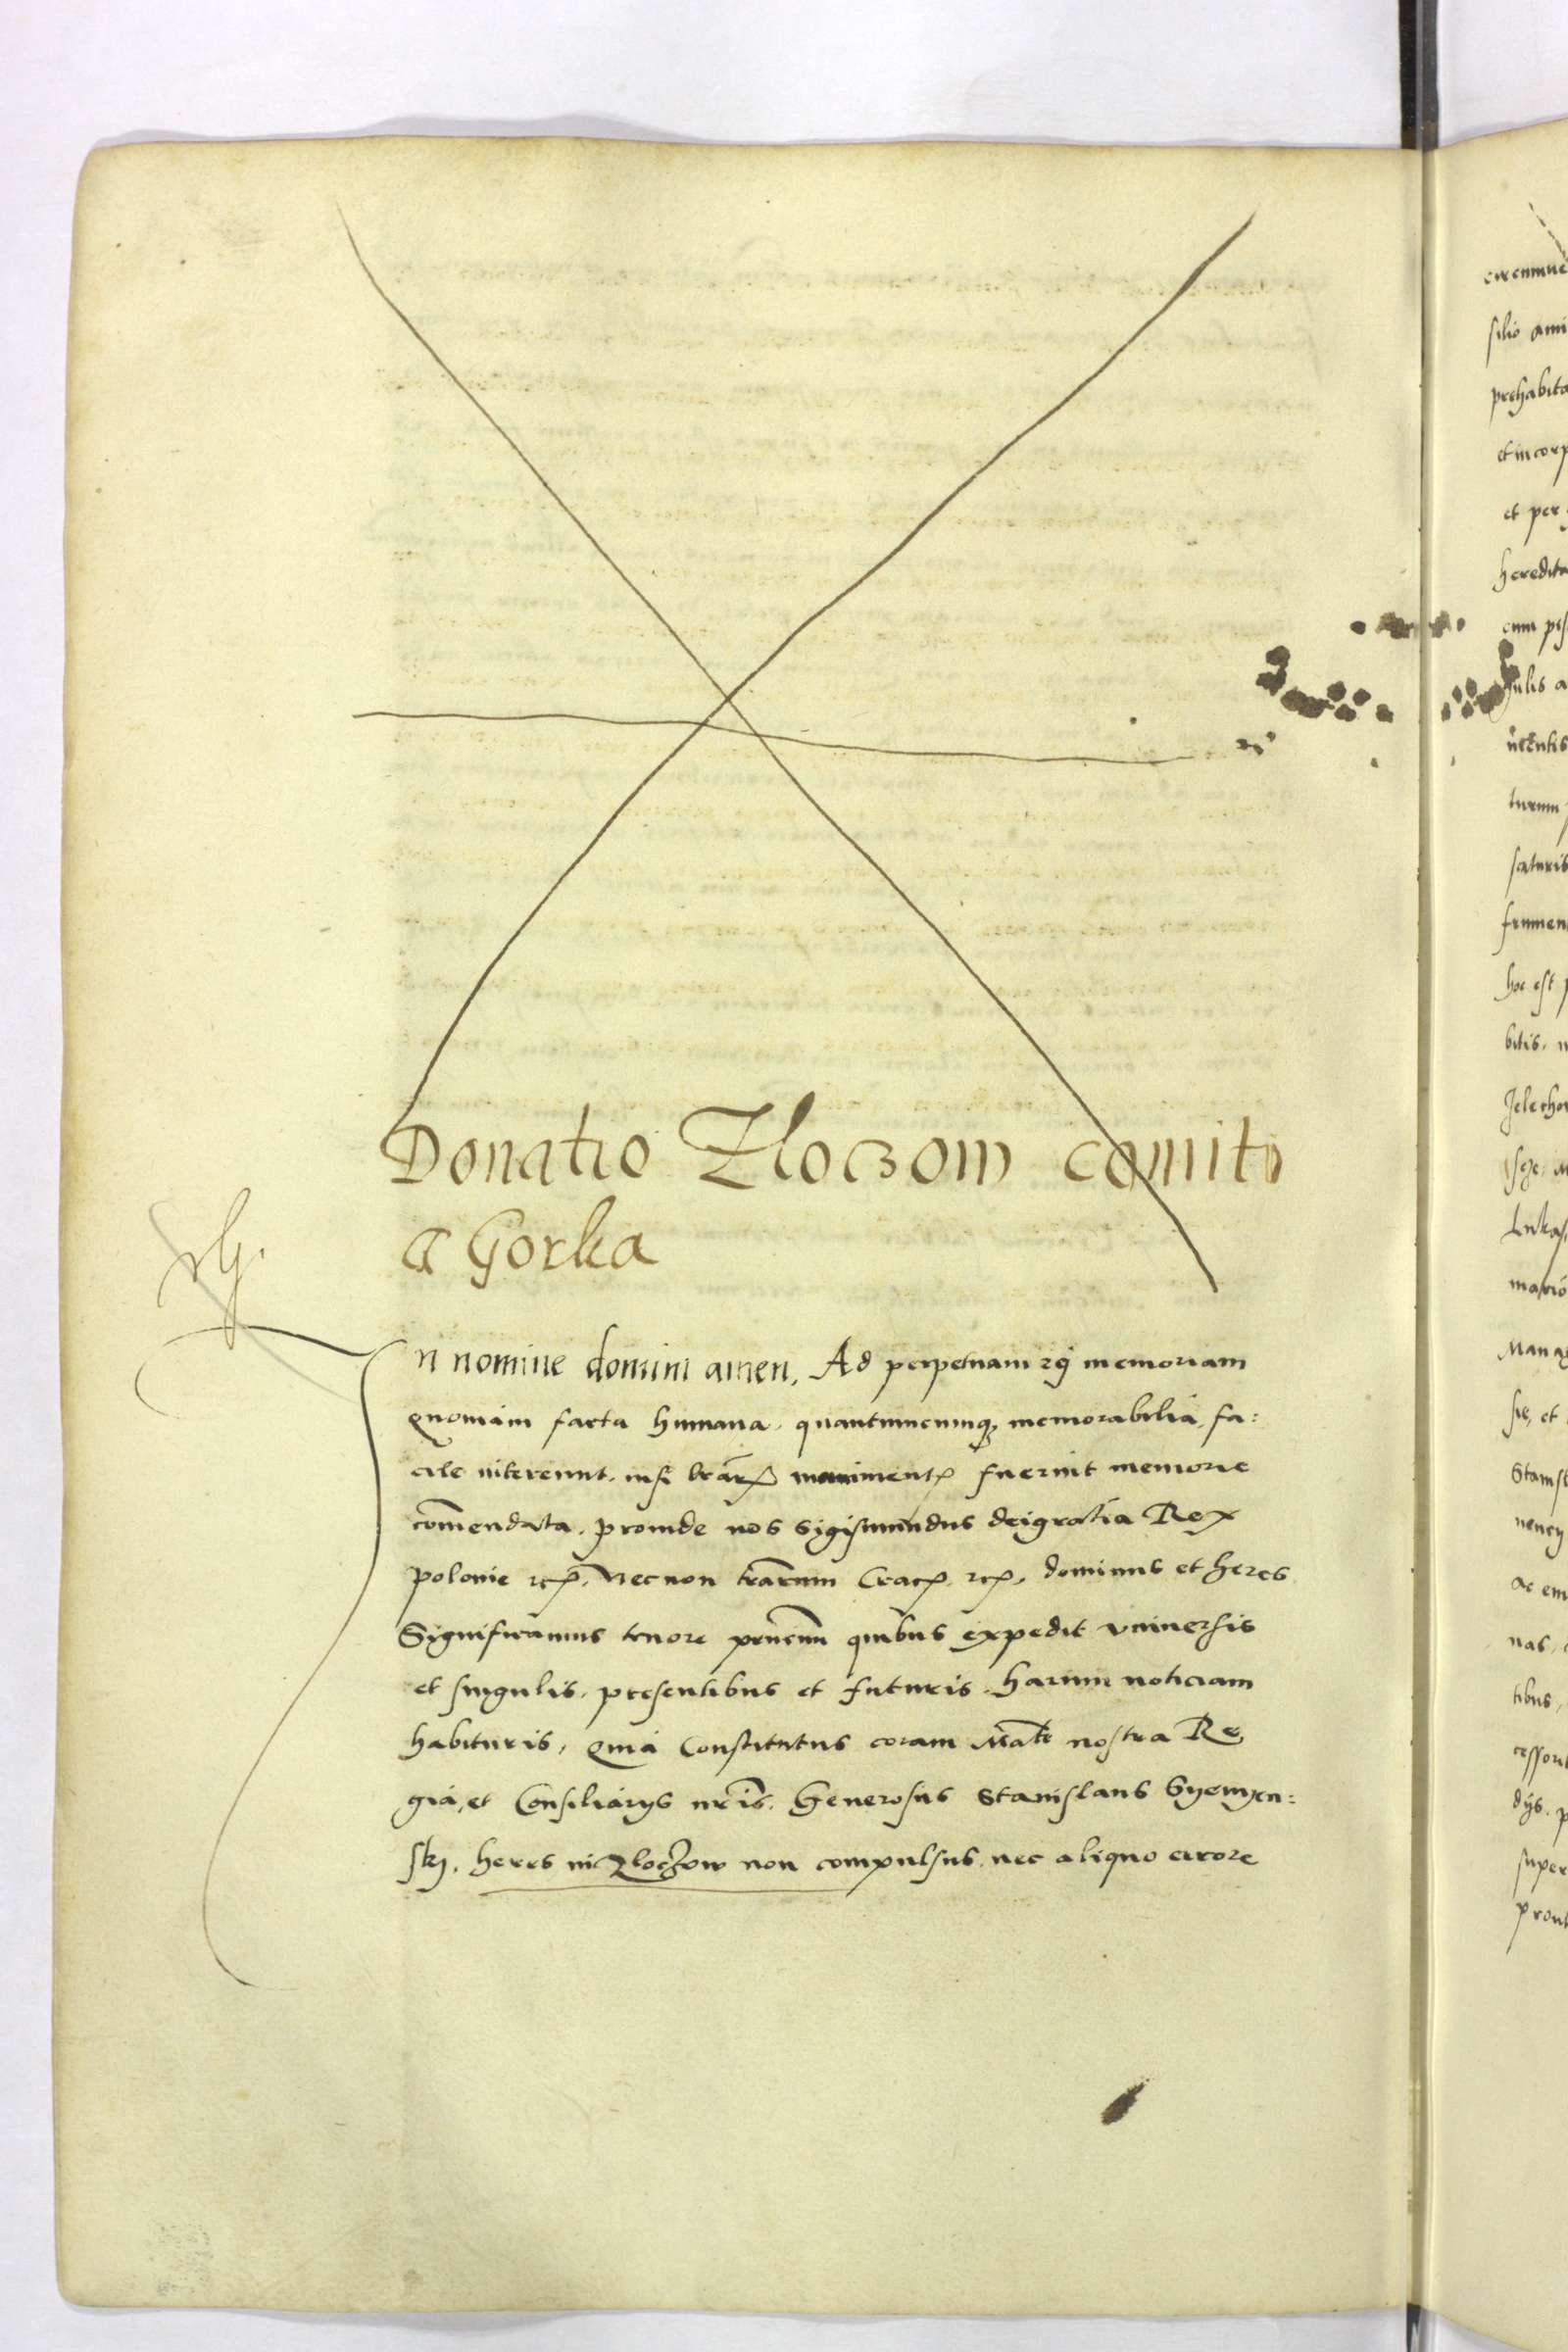 Donatio Zloczow comiti
a Gorka
In nomine domini amen. Ad perpetuam rei memoriam
quoniam facta humana, quantumcunque memorabilia, fa:
cile intereunt, nisi lrarum monimentis fuerint memorie
comendata. Proinde nos Sigismundus dei gratia Rex
polonie etc. Necnon trarum Crac. etc. dominus et heres
Significamus tenore pntium quibus expedit vniuersis
et singulis, presentibus et futuris harum noticiam
habituris, Quia Constitutus coram Mate nostra Re,
gia, et Consiliarys nris. Generosus Stanislaus Syenyen:
sky, heres in Zloczow non compulsus, nec aliquo errore
circumue
silio ami
prehabita
et incorp
et per
heredita
turum
saturis
frumen
hoc est
bitis
Stanisl
ac em
nas,
tibus,
cessori
dys. p
super